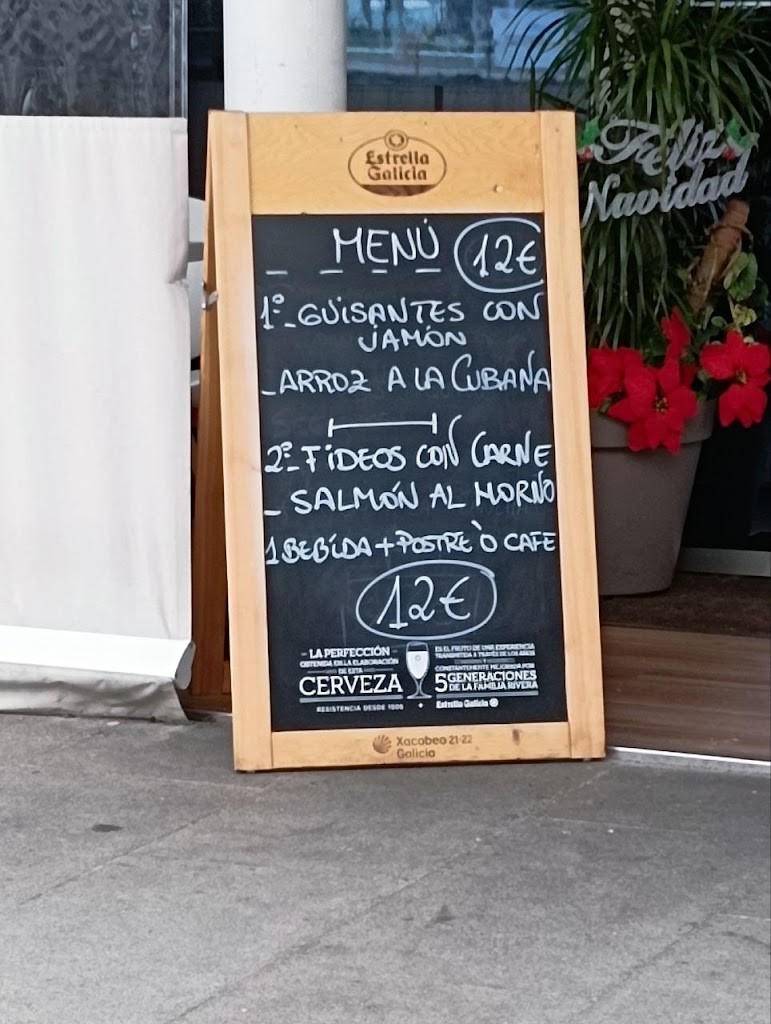 Estrella
Galicia
Feliz
Navidad
MENÚ 12€
1º-GUISANTES CON
JAMÓN
-ARROZ A LA CUBANA
2º-FIDEOS CON CARNE
- SALMÓN AL HORNO
1 BEBIDA + POSTRE Ò CAFE
12€
LA PERFECCIÓN
OBTENIDA EN LA ELABORACIÓN
DE ESTA
CERVEZA
RESISTENCIA DESDE 1906
ES EL FRUTO DE UNA EXPERIENCIA
TRANSMITIDA A TRAVÉS DE LOS AÑOS
Y
CONSTANTEMENTE MEJORADA POR
5 GENERACIONES
DE LA FAMILIA RIVERA
Estrella Galicia
Xacobeo 21·22
Galicia